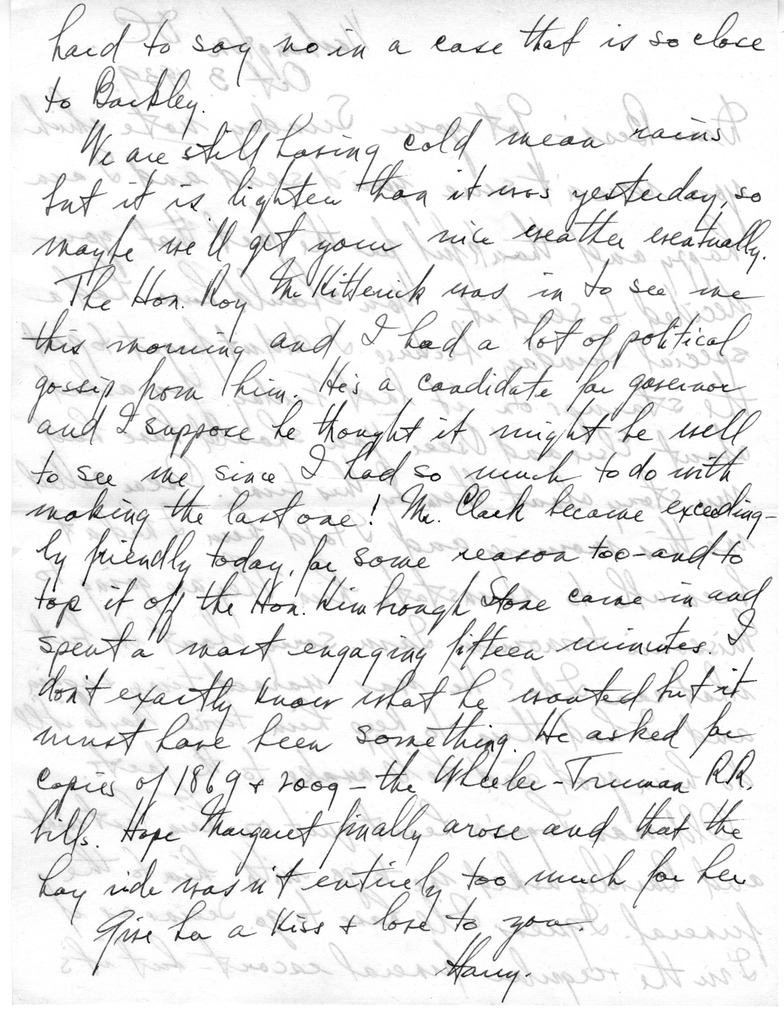 hard to say no in a case that is so close
to Barkley.
We are still having cold mean rains
but it is lighter than it was yesterday, so
maybe we'll get your nice weather eventually.
The Hon. Roy McKittrick was in to see me
this morning and I had a lot of political
gossip from him. He's a candidate for governor
and I suppose he thought it might be well
to see me since I had so much to do with
making the last one! Mr. Clark became exceeding-
ly friendly today, for some reason too - and to
top it off the Hon. Kimbrough Stone came in and
spent a most engaging fifteen minutes. I
don't exactly know what he wanted but it
must have been something. He asked for
copies of 1869 & 2009 - the Wheeler-Truman R.R.
bills. Hope Margaret finally arose and that the
hay ride wasn't entirely too much for her
Give her a kiss & love to you.
Harry.